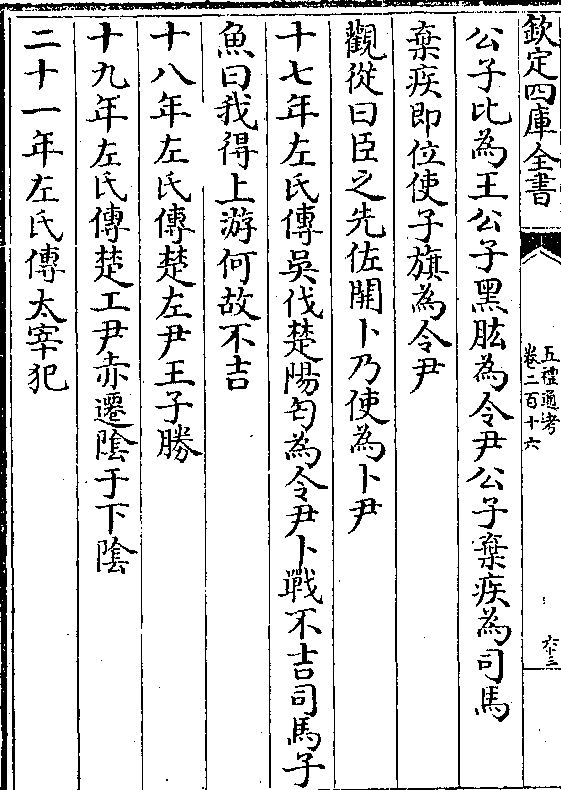 欽定四庫全書
五禮通考
卷二百十六
六十三
公子比為王公子黑肱為令尹公子棄疾為司馬
棄疾即位使子旗為令尹
觀從曰臣之先佐開卜乃使為卜尹
十七年左氏傳吳伐楚陽匄為令尹卜戰不吉司馬子
魚曰我得上游何故不吉
十八年左氏傳楚左尹王子勝
十九年左氏傳楚工尹赤遷陰于下陰
二十一年左氏傳太宰犯